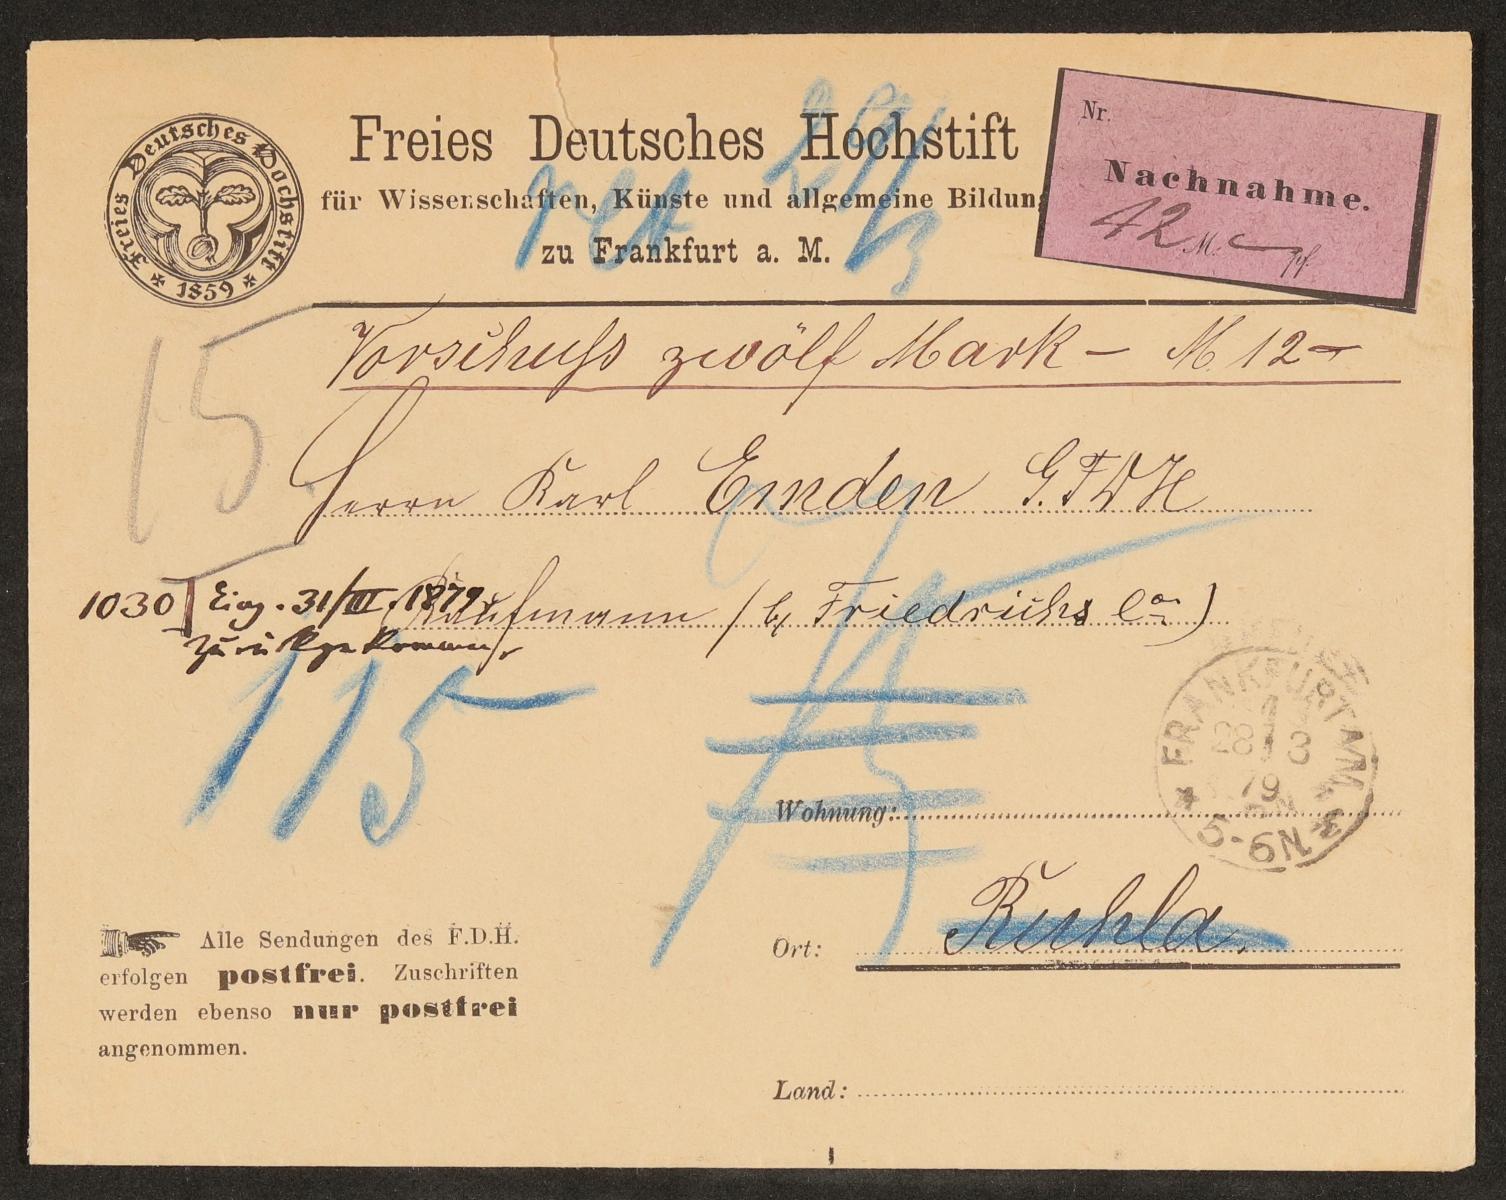 Freies Deutsches Hochstift
1859
Freies Deutsches Hochstift
für Wissenschaften, Künste und allgemeine Bildung
zu Frankfurt a. M.
Nr.
Nachnahme.
M. Pf.
Vorschuss zwölf Mark – M. 12 –
15
Herrn Karl Emden G.FDH
1030 Eing. 31/III. 1879.
zurükgekommen.
Kaufmann (b/ Friedrichs Co)
115
FRANKFURT A/M.
28 3
79
5-6N
Wohnung:
Ort: Ruhla.
Alle Sendungen des F.D.H.
erfolgen postfrei. Zuschriften
werden ebenso nur postfrei
angenommen.
Land: